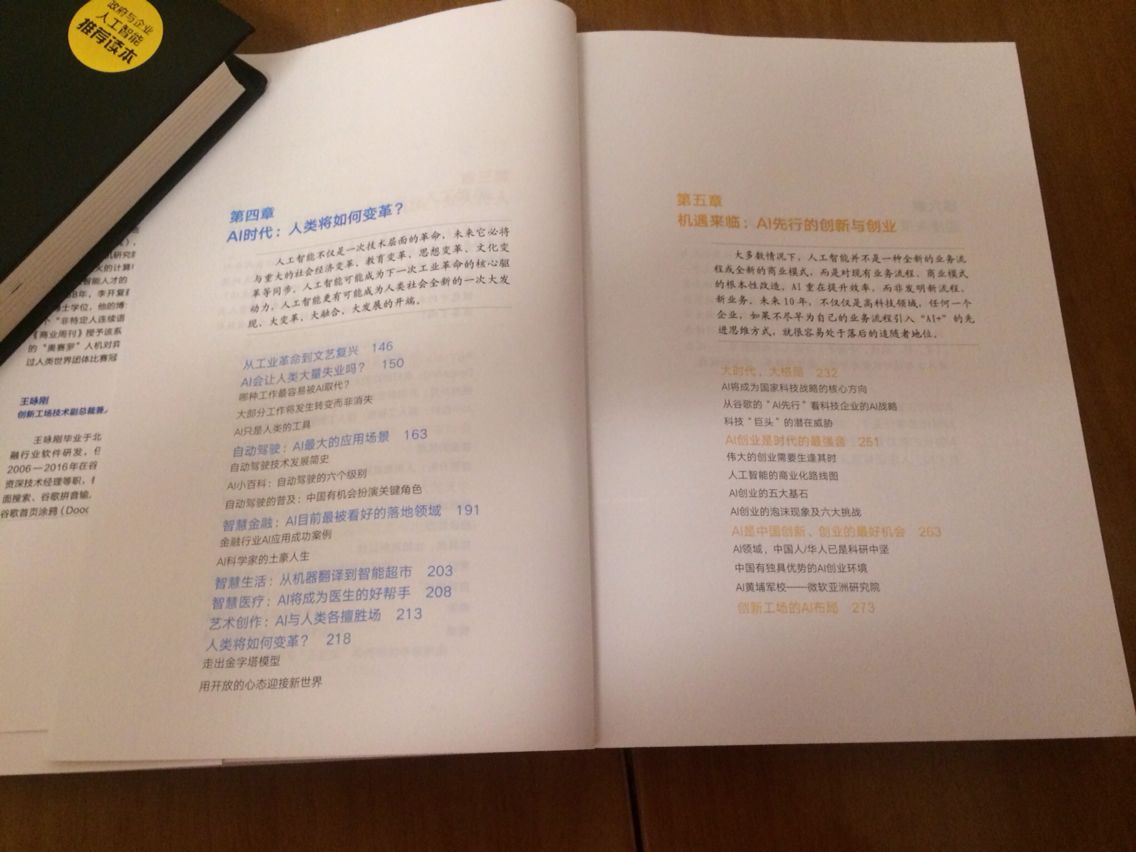 政府与企业
人工智能
推荐读本
机研究
大的计算
智能人才的
8年，李开复
士学位，他的博
个“非特定人连续语
《商业周刊》授予该系
的“奥赛罗”人机对弈
过人类世界团体比赛冠
王咏刚
创新工场技术副总裁兼
王咏刚毕业于北
融行业软件研发，任
2006—2016年在谷
资深技术经理等职，
面搜索、谷歌拼音输
谷歌首页涂鸦（Dood
第四章
AI时代：人类将如何变革？
人工智能不仅是一次技术层面的革命，未来它必将
与重大的社会经济变革、教育变革、思想变革、文化变
革等同步。人工智能可能成为下一次工业革命的核心驱
动力，人工智能更有可能成为人类社会全新的一次大发
现、大变革、大融合、大发展的开端。
从工业革命到文艺复兴 146
AI会让人类大量失业吗？ 150
哪种工作最容易被AI取代？
大部分工作将发生转变而非消失
AI只是人类的工具
自动驾驶：AI最大的应用场景 163
自动驾驶技术发展简史
AI小百科：自动驾驶的六个级别
自动驾驶的普及：中国有机会扮演关键角色
智慧金融：AI目前最被看好的落地领域 191
金融行业AI应用成功案例
AI科学家的土豪人生
智慧生活：从机器翻译到智能超市 203
智慧医疗：AI将成为医生的好帮手 208
艺术创作：AI与人类各擅胜场 213
人类将如何变革？ 218
走出金字塔模型
用开放的心态迎接新世界
第五章
机遇来临：AI先行的创新与创业
大多数情况下，人工智能并不是一种全新的业务流
程或全新的商业模式，而是对现有业务流程、商业模式
的根本性改造。AI重在提升效率，而非发明新流程、
新业务。未来10年，不仅仅是高科技领域，任何一个
企业，如果不尽早为自己的业务流程引入“AI+”的先
进思维方式，就很容易处于落后的追随者地位。
大时代，大格局 232
AI将成为国家科技战略的核心方向
从谷歌的“AI先行”看科技企业的AI战略
科技“巨头”的潜在威胁
AI创业是时代的最强音 251
伟大的创业需要生逢其时
人工智能的商业化路线图
AI创业的五大基石
AI创业的泡沫现象及六大挑战
AI是中国创新、创业的最好机会 263
AI领域，中国人/华人已是科研中坚
中国有独具优势的AI创业环境
AI黄埔军校——微软亚洲研究院
创新工场的AI布局 273